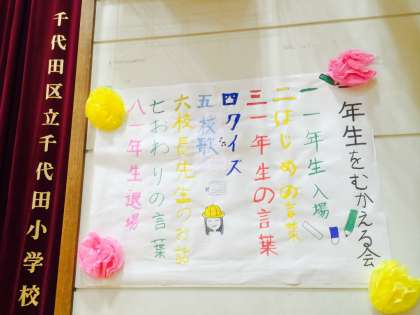 一年生をむかえる会
一 一年生入場
二 はじめの言葉
三 一年生の言葉
四 クイズ
五 校歌
六 校長先生のお話
七 おわりの言葉
八 一年生退場
千代田区立千代田小学校